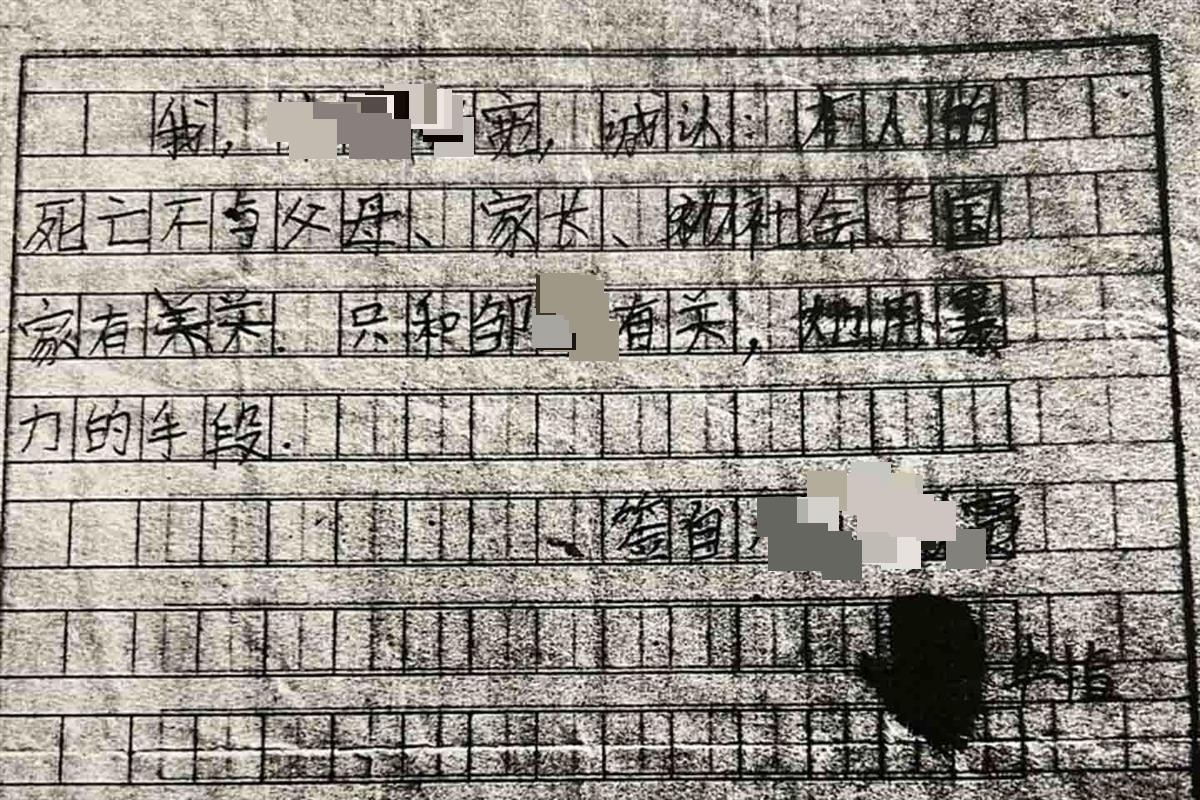 我，宽，诚认：本人的
死亡不与父母、家长、和社会、国
家有关关. 只和邹有关，他用暴
力的手段.
签自